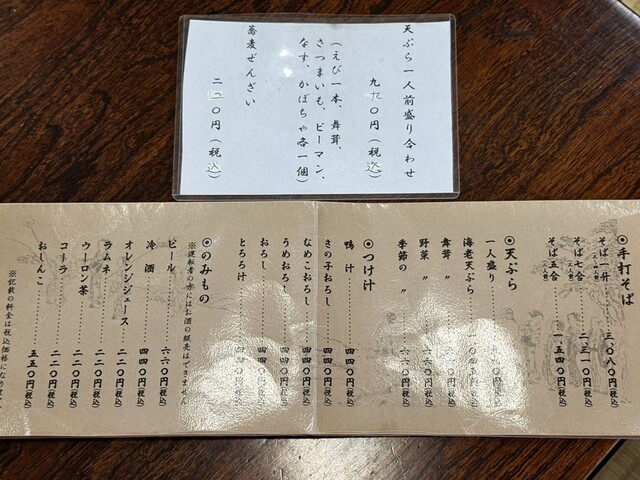 天ぷら一人前盛り合わせ
九九〇円(税込)
(えび一本、舞茸、
さつまいも、ピーマン、
なす、かぼちゃ各一個)
蕎麦ぜんざい
二二〇円(税込)
◎手打そば
そば一升………三、〇八〇円(税込)
そば七合………二、三一〇円(税込)
そば五合………一、五四〇円(税込)
◎天ぷら
一人盛り
海老天ぷら
舞茸 〃
野菜 〃
季節の 〃
◎つけ汁
鴨汁………四四〇円(税込)
きの子おろし………四四〇円(税込)
なめこおろし………四四〇円(税込)
うめおろし………四四〇円(税込)
おろし………四四〇円(税込)
とろろ汁
◎のみもの
※運転者の方にはお酒の販売はできません
ビール………六六〇円(税込)
冷酒………四四〇円(税込)
オレンジジュース………二二〇円(税込)
ラムネ………二二〇円(税込)
ウーロン茶………二二〇円(税込)
コーラ………二二〇円(税込)
おしんこ………五五〇円(税込)
※記載の料金は税込価格になりま